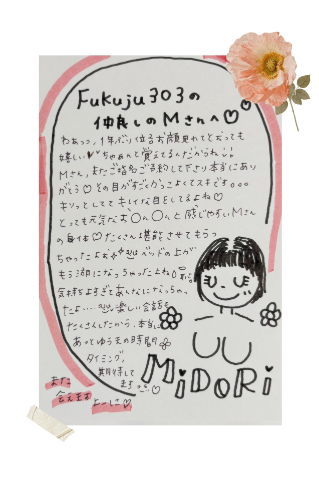 Fukuju303の
仲良しのMさんへ♡♡
わぁっっ、1年ぶり位るお顔見れてとっても
嬉しい♡ちゃぁんと覚えてるんだからね!!
Mさん、またご指名ご予約して下さり本当にあり
がとう♡その目がすごくかっこよくてスキです。。。
キリッとしてて キレイな目してるよね♡
とっても元気なお〇ん〇んと感じやすいMさん
の身体♡たくさん堪能させてもらっ
ちゃったよぉ ベッドの上が
もう湖になっちゃったよね
気持ちよすぎてあんなになっちゃっ
たよ… 楽しい会話も
たくさんしたから、本当に
あっとゆう間の時間
タイミング、
期待して
ます
また
会えますよーに♡
MiDORi